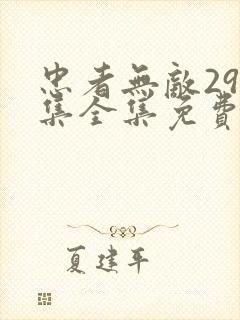 忠者無敵29
集全集免費
夏建平